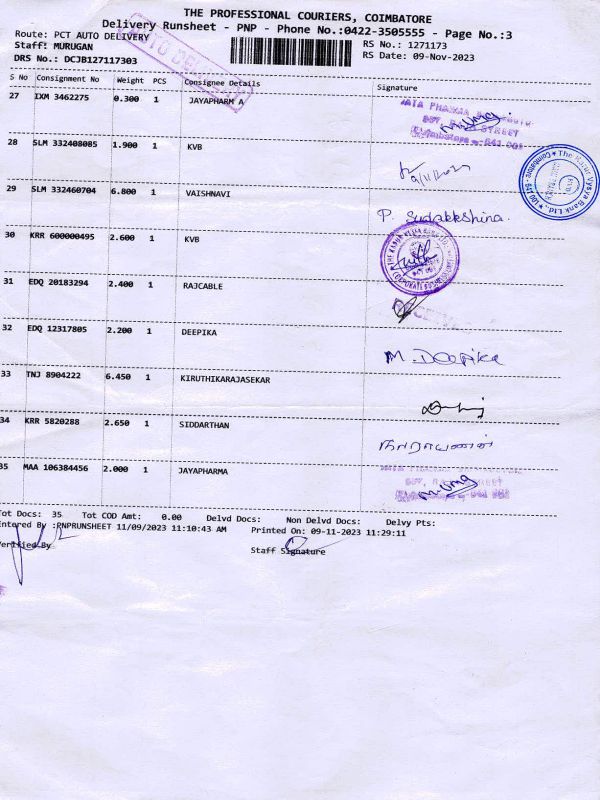 THE PROFESSIONAL COURIERS, COIMBATORE
Delivery Runsheet - PNP - Phone No.:0422-3505555 - Page No.:3
Route: PCT AUTO DELIVERY
RS No.: 1271173
Staff: MURUGAN
RS Date: 09-Nov-2023
DRS No.: DCJB127117303
AUTO DELIVERY
S No Consignment No Weight PCS Consignee Details Signature
27 IXM 3462275 0.300 1 JAYAPHARM A
STREET
28 SLM 332408085 1.900 1 KVB
The Karur Vysya Bank Ltd.,
29 SLM 332460704 6.800 1 VAISHNAVI
P. Sudakkshina.
30 KRR 600000495 2.600 1 KVB
31 EDQ 20183294 2.400 1 RAJCABLE
32 EDQ 12317805 2.200 1 DEEPIKA
M. Deepika
33 TNJ 8904222 6.450 1 KIRUTHIKARAJASEKAR
34 KRR 5820288 2.650 1 SIDDARTHAN
நாராயணன்
35 MAA 106384456 2.000 1 JAYAPHARMA
Tot Docs: 35 Tot COD Amt: 0.00 Delvd Docs: Non Delvd Docs: Delvy Pts:
Entered By :PNPRUNSHEET 11/09/2023 11:10:43 AM Printed On: 09-11-2023 11:29:11
Verified By
Staff Signature